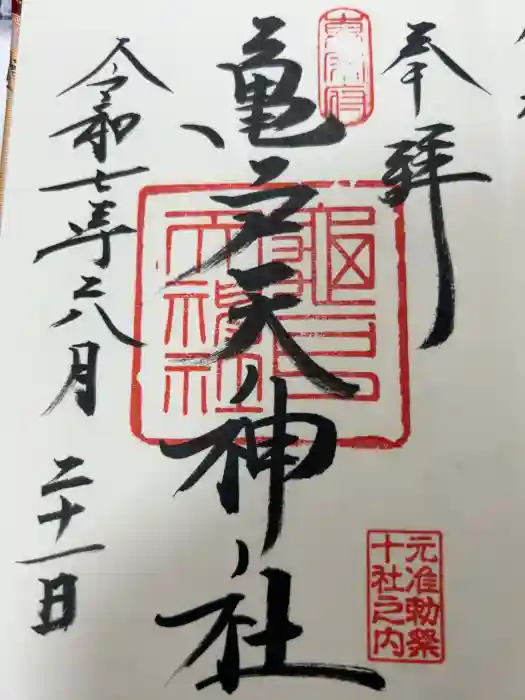 奉拝
東宰府
亀戸天神社
龜戸
天神社
元准勅祭
十社之内
令和七年六月二十一日